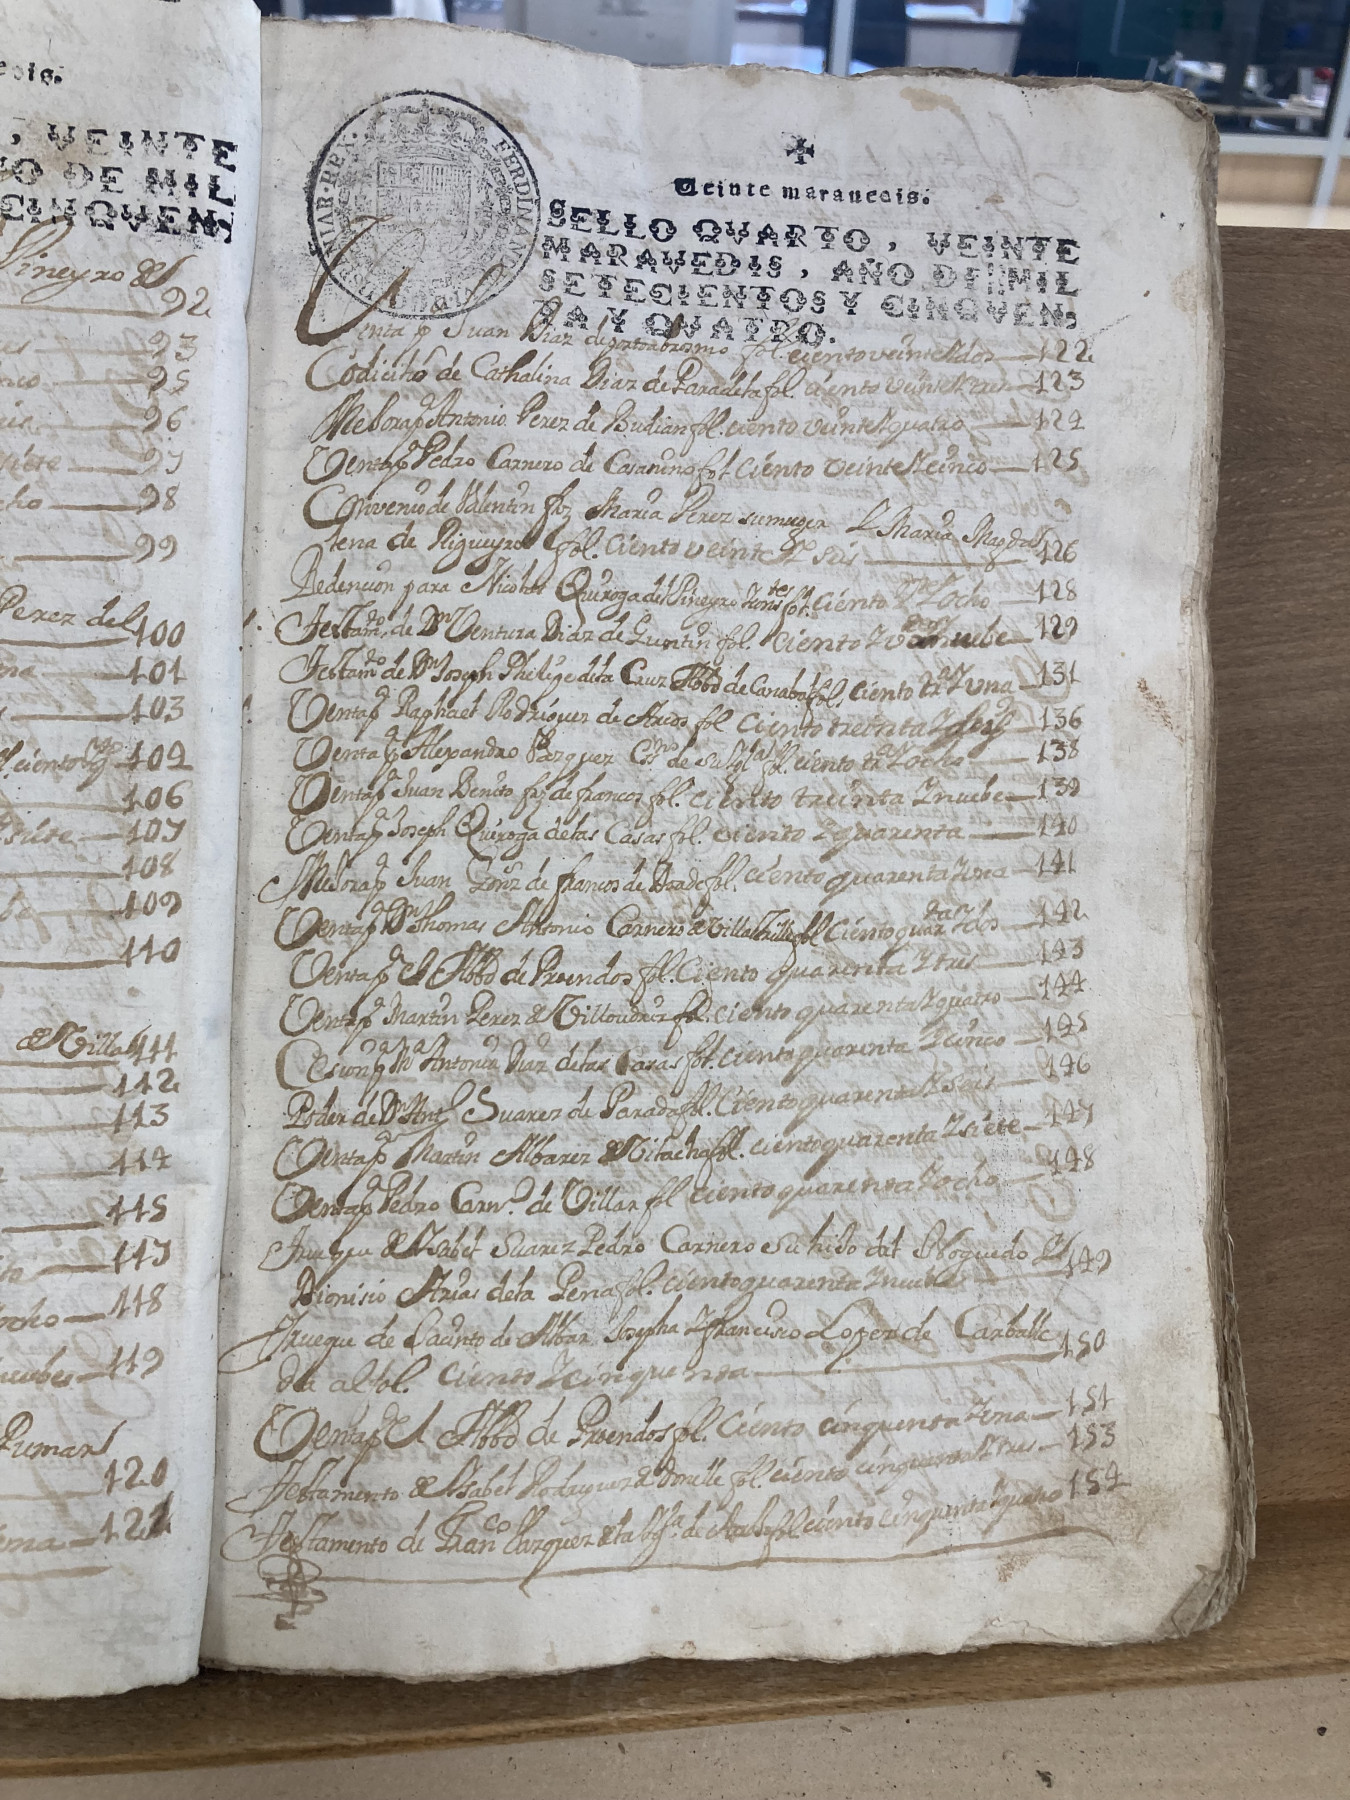 eois.
, VEINTE
ÑO DE MIL
CINQVEN,
Pineyro del
92
93
95
96
siete 97
cho 98
99
Perez del 100
101
103
ciento 104
106
siete 107
108
109
110
de Villa 111
112
113
114
115
117
ocho 118
nuebe 119
Pumar
120
una 121
FERDINANDVS HISPANIAR REX
Veinte marauedis.
SELLO QVARTO, VEINTE
MARAVEDIS, AÑO DE MIL
SETECIENTOS Y CINQVEN,
TA Y QVATRO.
Venta pr Juan Diaz de fol. ciento veinte Ydos 122
Codicilio de Cathalina Diaz de Paradela fol. ciento veinte Ytres 123
Mejora pr Antonio Perez de Budian fol. ciento veinte Yquatro 124
Venta pr Pedro Carnero de Casanino fol. Ciento veinte Ycinco 125
Convenio de Valentin frz Maria Perez sumuger Y Maria Magda
lena de Rigueyro fol. ciento veinte Y seis 126
Redencion para Nicolas Quiroga del Pineyro fol. ciento Yocho 128
Testamto de Dn Ventura Diaz de Guntin fol. ciento nuebe 129
Testamto de Dn Joseph Phelipe dela Cruz Abbd de fol. ciento Yuna 131
Venta pr Raphael Rodriguez de Arcos fol ciento treinta Yseis 136
Venta pr Alexandro Bazquez fol. ciento Yocho 138
Venta pr Juan Benito frz de francos fol. ciento treinta Ynuebe 139
Venta pr Joseph Quiroga delas Casas fol. ciento Yquarenta 140
Mejora pr Juan Gonz de francos de fol. ciento quarenta Yuna 141
Venta pr Dn Thomas Antonio Carnero de fol Ciento quarta Ydos 142
Venta pr el Abbd de Proendos fol. Ciento quarenta Ytres 143
Venta pr Martin Perez de fol. ciento quarenta Yquatro 144
Cesion pr Ma Antonia Diaz delas Casas fol. ciento quarenta Ycinco 145
Poder de Dn Suarez de Parada fol. Ciento quarenta Yseis 146
Venta pr Martin Albarez de Vilacha fol. ciento quarenta Ysiete 147
Venta pr Pedro Carnro de Villar fol ciento quarenta Yocho 148
Trueque de Ysabel Suarez Pedro Carnero suhijo del
Dionisio Arias dela Pena fol. ciento quarenta Ynuebe 149
Trueque de Jacinto de Albar Josepha Yfrancisco Lopez de Carballe
da al fol. ciento Ycinquenta 150
Venta pr el Abbd de Proendos fol. Ciento cinquenta Yuna 151
Testamento de Ysabel Rodriguez de fol. ciento cinquenta Ytres 153
Testamento de Franco Bazquez dela de fol. ciento cinquenta Yquatro 154